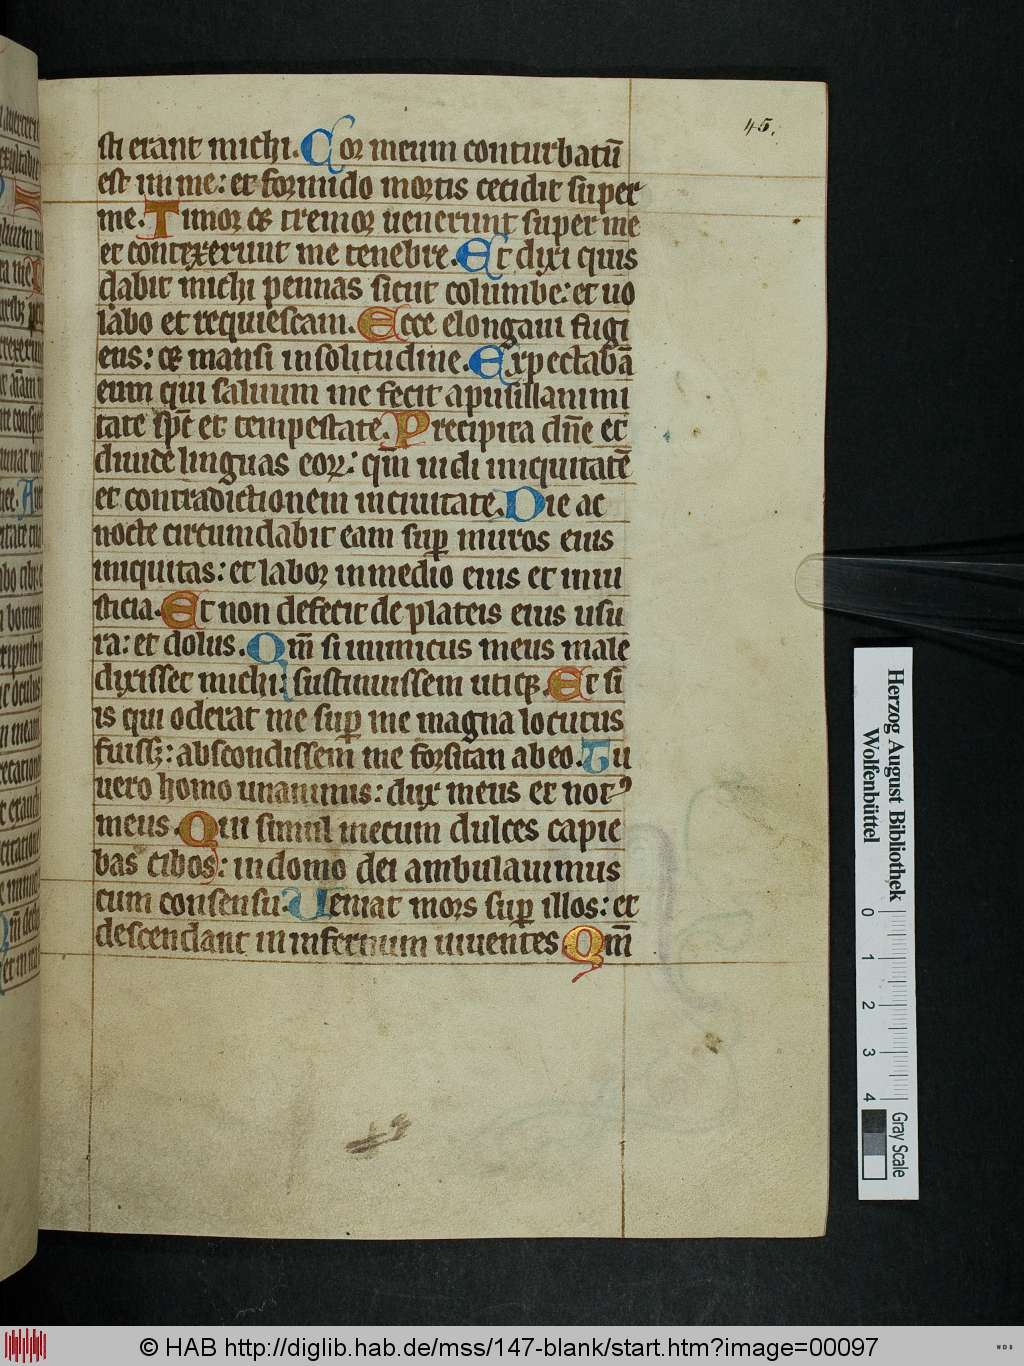 45.
sti erant michi. Cor meum conturbatū
est in me: et formido mortis cecidit super
me. Timor et tremor uenerunt super me
et contexerunt me tenebre. Et dixi quis
dabit michi pennas sicut columbe: et uo
labo et requiescam. Ecce elongaui fugi
ens: et mansi in solitudine. Expectabā
eum qui saluum me fecit a pusillanimi
tate spc̄ et tempestate. Precipita dn̄e et
diuide linguas eoꝝ: qm̄ uidi iniquitatē
et contradictionem in ciuitate. Die ac
nocte circumdabit eam suꝑ muros eius
iniquitas: et labor in medio eius et iniu
sticia. Et non defecit de plateis eius usu
ra: et dolus. Qm̄ si inimicus meus male
dixisset michi: sustinuissem utiqꝫ. Et si
is qui oderat me suꝑ me magna locutus
fuissꝫ: abscondissem me forsitan ab eo. Tu
uero homo unanimis: dux meus et notꝰ
meus. Qui simul mecum dulces capie
bas cibos: in domo dei ambulauimus
cum consensu. Ueniat mors suꝑ illos: et
descendant in infernum uiuentes Qm̄
Herzog August Bibliothek
Wolfenbüttel
0 1 2 3 4
Gray Scale
© HAB http://diglib.hab.de/mss/147-blank/start.htm?image=00097